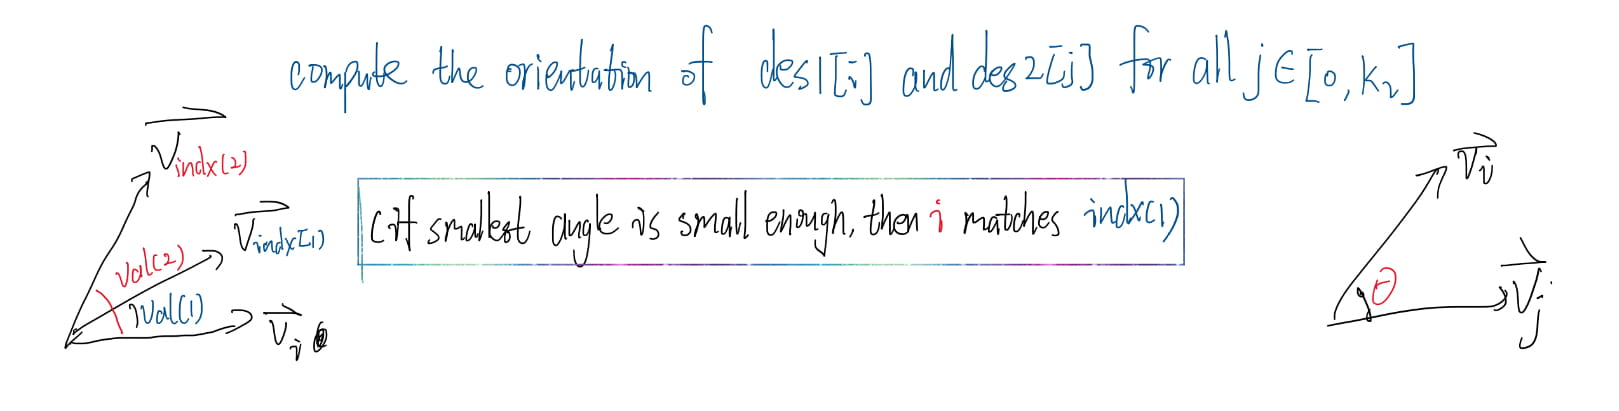 compute the orientation of des1[i] and des2[j] for all j∈[0,K₂]
V indx(2)
V indx[1)
val(2)
val(1)
Vi
(if smallest angle is small enough, then i matches indx(1)
Vi
θ
Vj